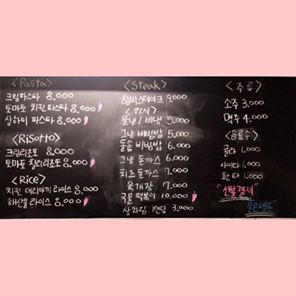 <Pasta>
크림파스타 8,000
토마토 치킨 파스타 8,000
상하이 파스타 8,000
<Risotto>
크림리조또 8,000
토마토 치킨리조또 8,000
<Rice>
치킨 데리야끼 라이스 8,000
해산물 라이스 8,000
<Steak>
함박스테이크 9,000
<한식>
물냉 / 비냉 5,000
그냥 비빔밥 5,000
돌솥 비빔밥 6,000
그냥 돈까스 6,000
치즈 돈까스 7,000
육개장 7,000
국물 떡볶이 10,000
3,000
<주류>
소주 3,000
맥주 4,000
<음료수>
콜라 1,000
사이다 1,000
환타 1,000
"선불결제"